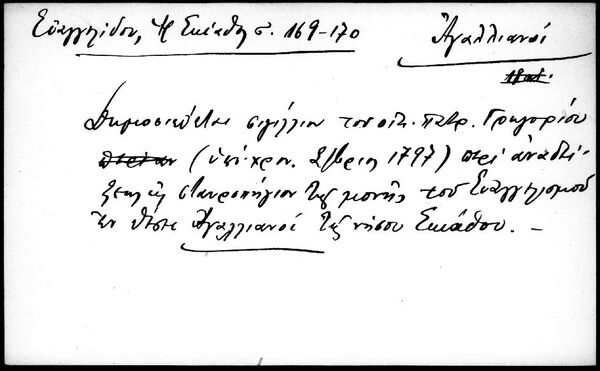 Εὐαγγελίδου, Ἡ Σκίαθος σ. 169-170
Ἀγαλλιανοί
Δημοσιεύεται σιγίλλιον τοῦ οἰκ. πατρ. Γρηγορίου
(ὑπὸ χρον. 1797) περὶ ἀναδεί-
ξεως εἰς σταυροπήγιον τῆς μονῆς τοῦ Εὐαγγελισμοῦ
ἐν θέσει Ἀγαλλιανοί τῆς νήσου Σκιάθου. –